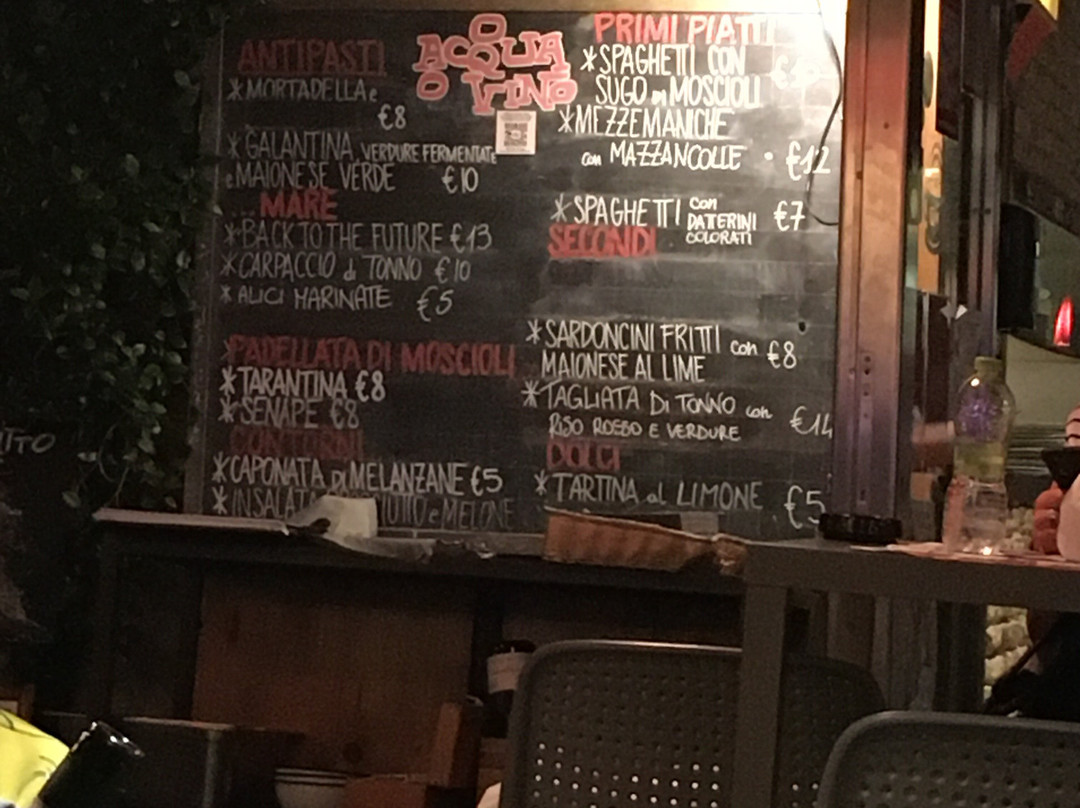 ANTIPASTI
*MORTADELLA e
€8
*GALANTINA, VERDURE FERMENTATE
e MAIONESE VERDE €10
... MARE
*BACK TO THE FUTURE €13
*CARPACCIO di TONNO €10
* ALICI MARINATE €5
PADELLATA DI MOSCIOLI
*TARANTINA €8
*SENAPE €8
CONTORNI
*CAPONATA di MELANZANE €5
*INSALATA e MELONE
ACQUA
O
VINO
PRIMI PIATTI
*SPAGHETTI CON
SUGO di MOSCIOLI
*MEZZEMANICHE
con MAZZANCOLLE €12
*SPAGHETTI con DATERINI COLORATI €7
SECONDI
*SARDONCINI FRITTI con €8
MAIONESE AL LIME
*TAGLIATA DI TONNO con €14
RISO ROSSO E VERDURE
DOLCI
*TARTINA al LIMONE €5